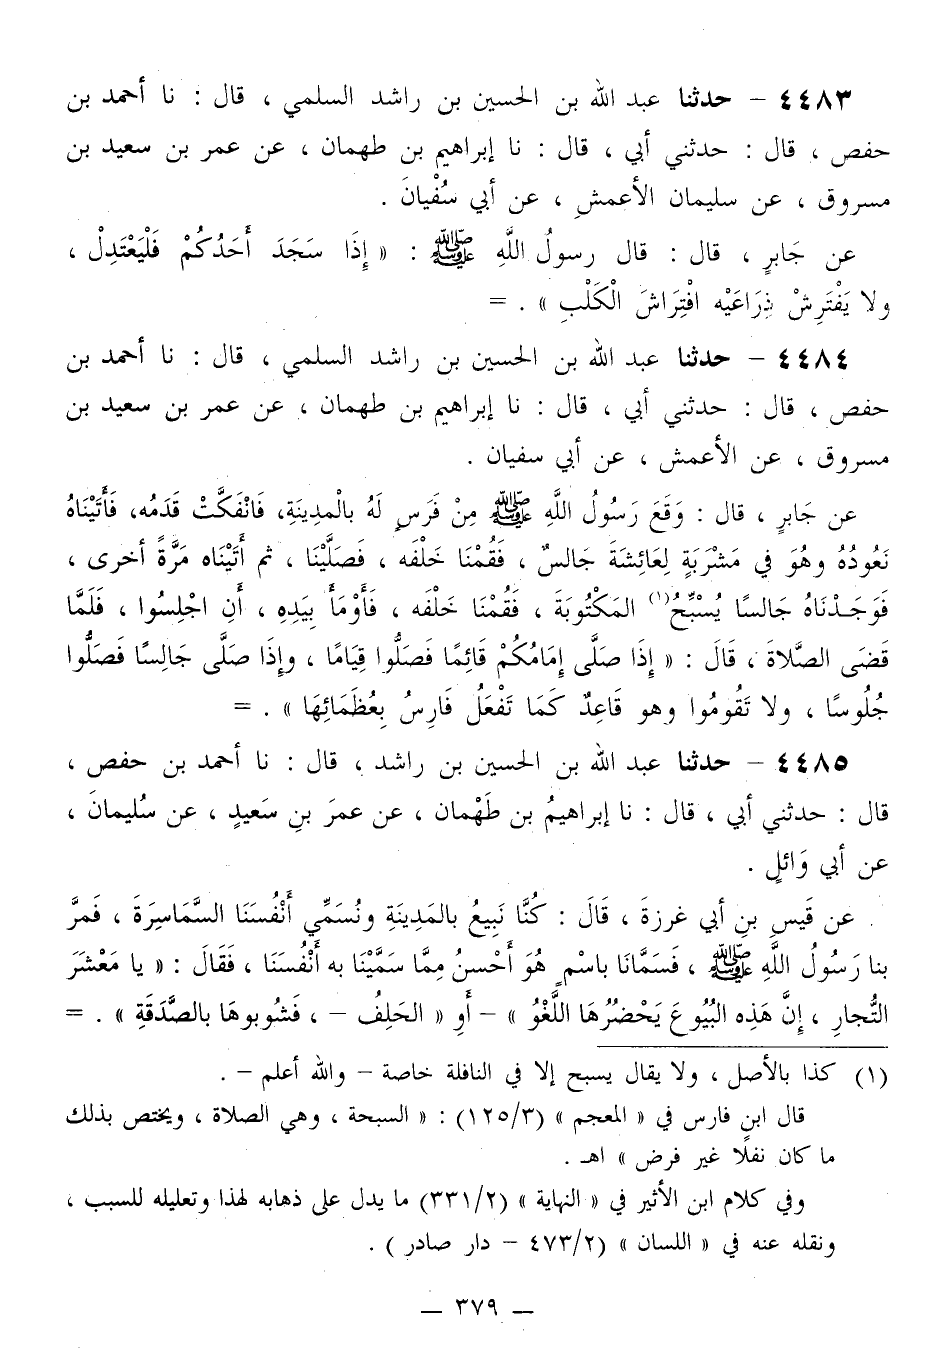 ٤٤٨٣ – حدثنا عبد الله بن الحسين بن راشد السلمي ، قال : نا أحمد بن
حفص ، قال : حدثني أبي ، قال : نا إبراهيم بن طهمان ، عن عمر بن سعيد بن
مسروق ، عن سليمان الأعمشِ ، عن أبي سُفْيانَ .
عن جَابرٍ ، قال : قال رسولُ اللَّهِ ﷺ : « إِذَا سَجَدَ أَحَدُكُمْ فَلْيَعْتَدِلْ ،
ولا يَفْتَرِشْ ذِرَاعَيْه افْتِرَاشَ الْكَلْبِ » . =
٤٤٨٤ – حدثنا عبد الله بن الحسين بن راشد السلمي ، قال : نا أحمد بن
حفص ، قال : حدثني أبي ، قال : نا إبراهيم بن طهمان ، عن عمر بن سعيد بن
مسروق ، عن الأعمش ، عن أبي سفيان .
عن جَابرٍ ، قال : وَقَعَ رَسُولُ اللَّهِ ﷺ مِنْ فَرَسٍ لَهُ بالْمدِينَةِ، فَانْفَكَّتْ قَدَمُه، فَأَتَيْنَاهُ
نَعُودُهُ وهُوَ في مَشْرَبَةٍ لِعَائِشَةَ جَالسٌ ، فَقُمْنَا خَلْفَه ، فَصَلَّيْنَا ، ثم أَتَيْنَاه مَرَّةً أخرى ،
فَوَجَدْنَاهُ جَالسًا يُسْبِّحُ(١) المَكْتُوبَةَ ، فَقُمْنَا خَلْفَه ، فَأَوْمَأَ بيَدِهِ ، أَنِ اجْلِسُوا ، فَلَمَّا
قضَى الصَّلَاةَ ، قَالَ : « إِذَا صَلَّى إِمَامُكُمْ قَائِمًا فَصَلُّوا قِيَامًا ، وإِذَا صَلَّى جَالِسًا فَصَلُّوا
جُلُوسًا ، ولا تَقُومُوا وهو قَاعِدٌ كَمَا تَفْعَلُ فَارِسُ بِعُظَمَائِهَا » . =
٤٤٨٥ – حدثنا عبد الله بن الحسين بن راشد ، قال : نا أحمد بن حفص ،
قال : حدثني أبي ، قال : نا إبراهيمُ بن طَهْمان ، عن عمرَ بنِ سَعيدٍ ، عن سُليمانَ ،
عن أبي وَائلٍ .
عن قَيسِ بنِ أبي غرزةَ ، قَالَ : كُنَّا نَبِيعُ بالمَدِينَةِ ونُسَمِّي أَنْفُسَنَا السَّمَاسِرَةَ ، فَمرَّ
بنا رَسُولُ اللَّهِ ﷺ ، فَسَمَّانَا باسْمٍ هُوَ أَحْسنُ مِمَّا سَمَّيْنَا به أَنْفُسَنَا ، فَقَالَ : « يا مَعْشَرَ
التُّجارِ ، إِنَّ هَذِه البُيُوعَ يَحْضُرُهَا اللَّغْوُ » – أَوِ « الحَلِفُ – ، فَشُوبوهَا بالصَّدَقَةِ » . =
(١) كذا بالأصل ، ولا يقال يسبح إلا في النافلة خاصة – والله أعلم – .
قال ابن فارس في « المعجم » (١٢٥/٣) : « السبحة ، وهي الصلاة ، ويختص بذلك
ما كان نفلًا غير فرض » اهـ .
وفي كلام ابن الأثير في « النهاية » (٣٣١/٢) ما يدل على ذهابه لهذا وتعليله للسبب ،
ونقله عنه في « اللسان » (٤٧٣/٢ – دار صادر ) .
– ٣٧٩ –